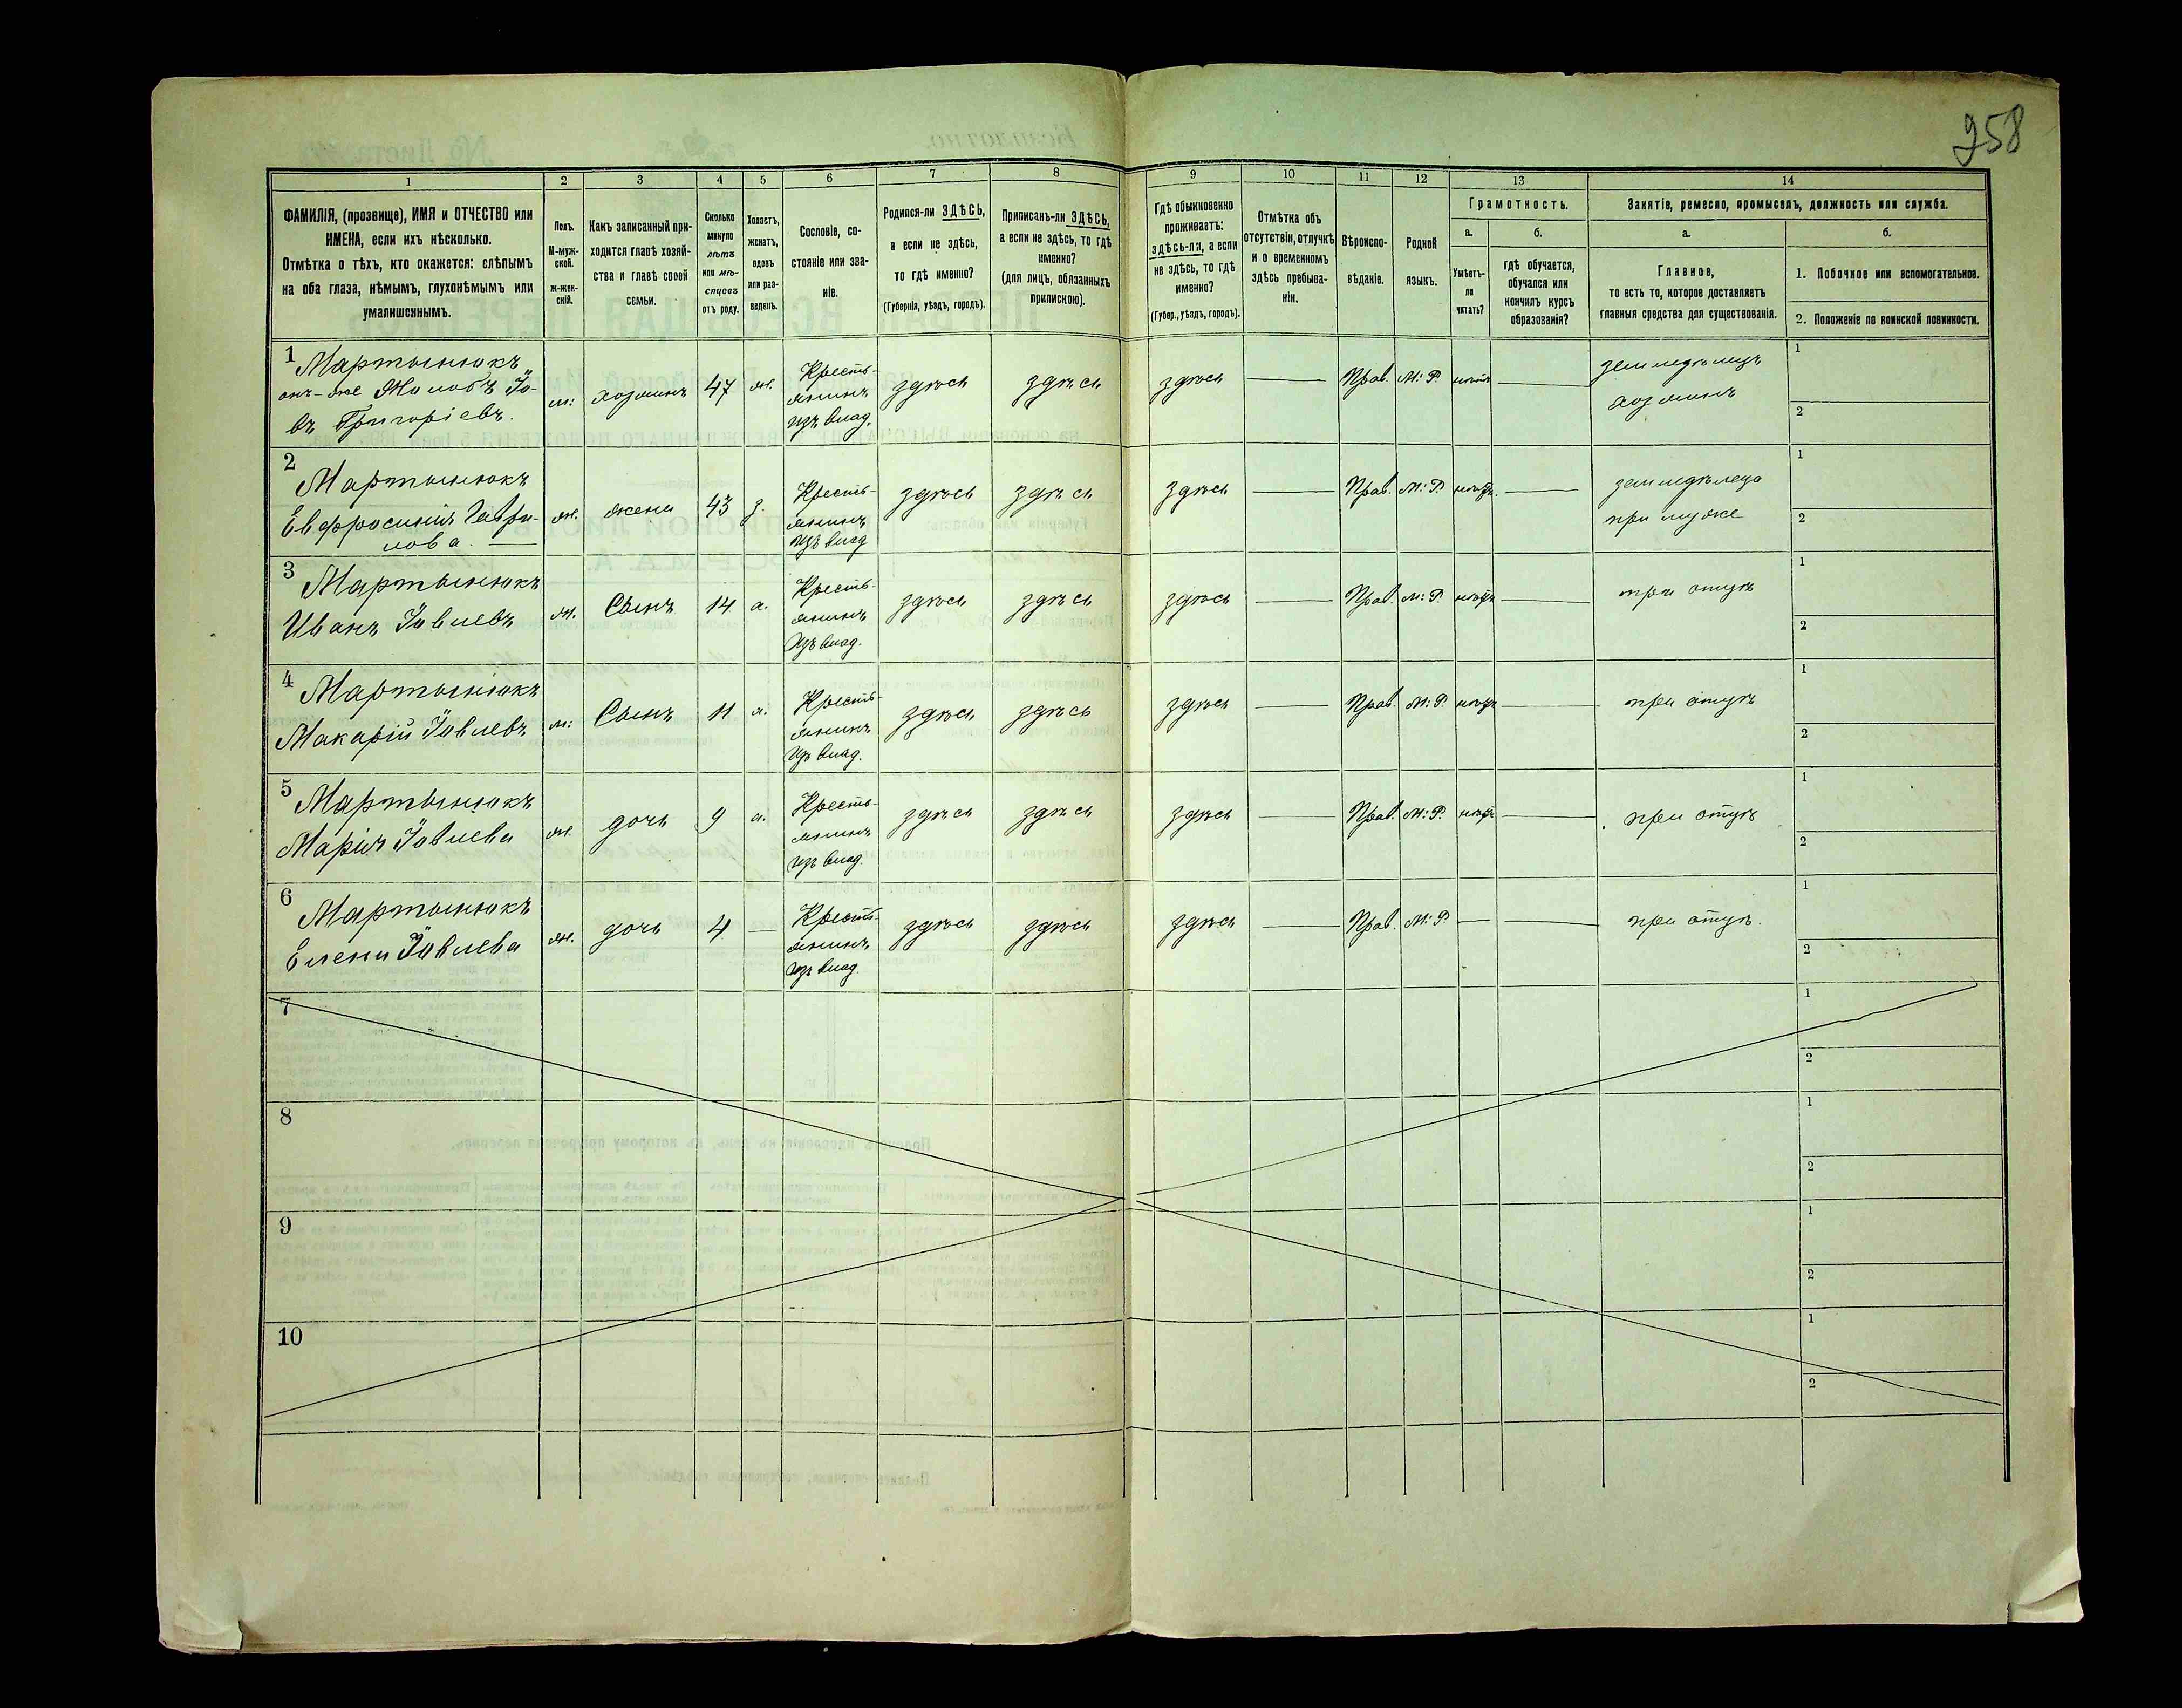 958
1
2
3
4
5
6
7
8
9
10
11
12
13
14
ФАМИЛІЯ, (прозвище), ИМЯ и ОТЧЕСТВО или
ИМЕНА, если ихъ нѣсколько.
Отмѣтка о тѣхъ, кто окажется: слѣпымъ
на оба глаза, нѣмымъ, глухонѣмымъ или
умалишеннымъ.
Полъ.
М-муж-
ской.
ж-жен-
скій.
Какъ записанный при-
ходится главѣ хозяй-
ства и главѣ своей
семьи.
Сколько
минуло
лѣтъ
или мѣ-
сяцевъ
отъ роду.
Холостъ,
женатъ,
вдовъ
или раз-
веденъ.
Сословіе, со-
стояніе или зва-
ніе.
Родился-ли ЗДѢСЬ,
а если не здѣсь,
то гдѣ именно?
(Губернія, уѣздъ, городъ).
Приписанъ-ли ЗДѢСЬ,
а если не здѣсь, то гдѣ
именно?
(для лицъ, обязанныхъ
припискою).
Гдѣ обыкновенно
проживаетъ:
здѣсь-ли, а если
не здѣсь, то гдѣ
именно?
(Губер., уѣздъ, городъ).
Отмѣтка объ
отсутствіи, отлучкѣ
и о временномъ
здѣсь пребыва-
ніи.
Вѣроиспо-
вѣданіе.
Родной
языкъ.
Грамотность.
а.
Умѣетъ-
ли
читать?
б.
гдѣ обучается,
обучался или
кончилъ курсъ
образованія?
Занятіе, ремесло, промыселъ, должность или служба.
а.
Главное,
то есть то, которое доставляетъ
главныя средства для существованія.
б.
1. Побочное или вспомогательное.
2. Положеніе по воинской повинности.
1 Мартынюкъ
онъ-же Жилобъ Іо-
въ Григоріевъ.
м: хозяинъ 47 ж. Кресть-
янинъ
изъ влад. здѣсь здѣсь здѣсь — Прав. М:Р. нѣтъ — земледѣлецъ
хозяинъ
1
2
2 Мартынюкъ
Евфросинія Гаври-
лова. —
ж. жена 43 з. Кресть-
янинъ
изъ влад здѣсь здѣсь здѣсь — Прав. М:Р. нѣтъ. — земледѣлецa
при мужѣ
1
2
3 Мартынюкъ
Иванъ Іовлевъ
м. Сынъ 14 х. Кресть-
янинъ
изъ влад. здѣсь здѣсь здѣсь — Прав. М:Р. нѣтъ — при отцѣ
1
2
4 Мартынюкъ
Макарій Іовлевъ
м: Сынъ 11 х. Кресть-
янинъ
изъ влад. здѣсь здѣсь здѣсь — Прав. М:Р. нѣтъ — при отцѣ
1
2
5 Мартынюкъ
Марія Іовлева
ж. дочь 9 х. Кресть-
янинъ
изъ влад. здѣсь здѣсь здѣсь — Прав. М:Р. нѣтъ — при отцѣ
1
2
6 Мартынюкъ
Елена Іовлева
ж. дочь 4 — Кресть-
янинъ
изъ влад. здѣсь здѣсь здѣсь — Прав. М:Р. — — при отцѣ.
1
2
7
1
2
8
1
2
9
1
2
10
1
2